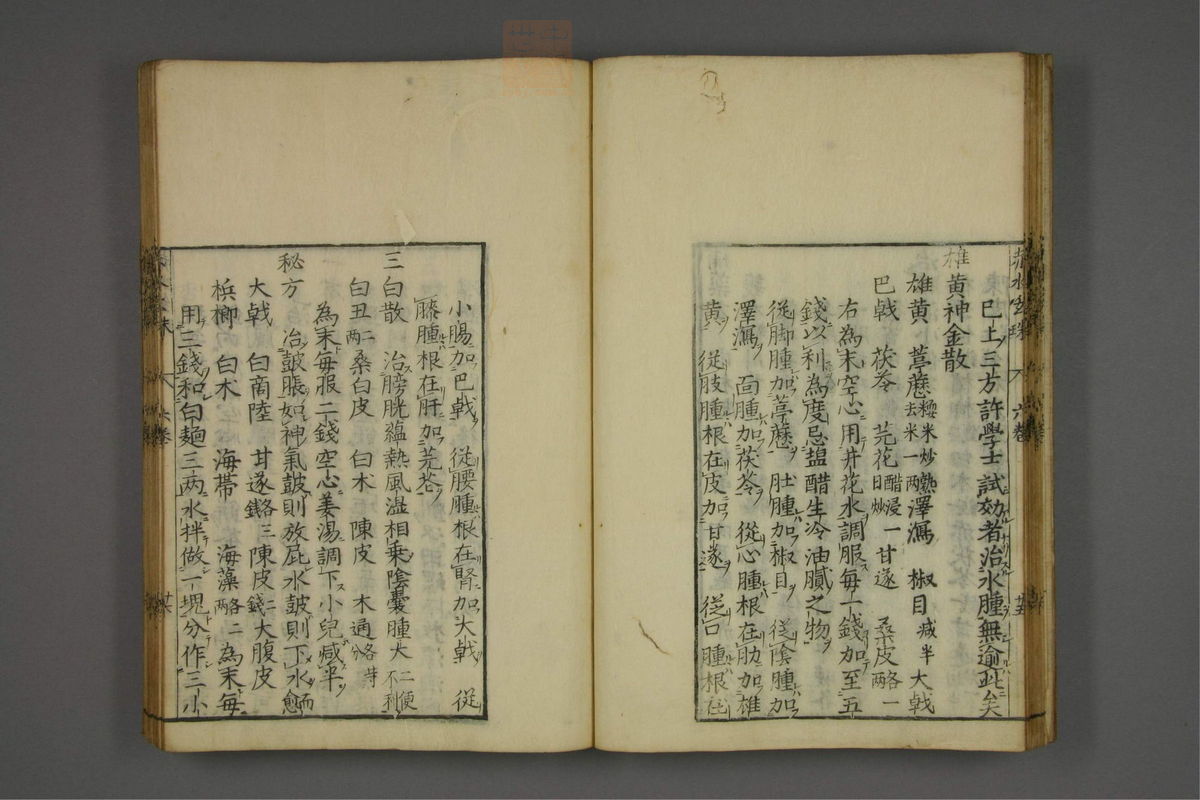 已上三方許學士試効者治水腫無逾此矣
雄黃神金散
雄黃　葶藶糯米炒熟去米一兩澤瀉　椒目减半大戟
巴戟　茯苓　芫花醋浸一日炒甘遂　桑皮各一兩
右為末空心用井花水調服毎一錢加至五
錢以利為度忌盬醋生冷油膩之物
從脚腫加葶藶　肚腫加椒目　從陰腫加
澤瀉　靣腫加茯苓　從心腫根在肋加雄
黃　從肢腫根在皮加甘遂　從口腫根在
小腸加巴戟　從腰腫根在腎加大戟　從
膝腫根在肝加芫花
三白散　治膀胱蘊熱風濕相乗陰囊腫大二便不利
白丑二兩桑白皮　白木　陳皮　木通各等分
為末毎服二錢空心姜湯調下小兒减半
秘方　治皷脹如神氣皷則放屁水皷則下水而愈
大戟　白商陸　甘遂各三錢陳皮二錢大腹皮
梹榔　白木　海帶　海藻各二兩為末毎
用三錢和白麵三两水拌做一塊分作三小
六卷